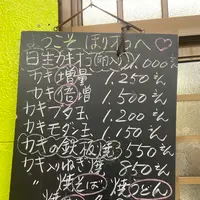 ようこそ、ほり
日生カキオコ(卵入り)1,000えん
カキ増量 1,250えん
カキ倍増 1,500えん
カキブタ玉 1,200えん
カキモダン玉 1,150えん
カキの鉄板焼 550えん
カキ入りねぎ焼 850えん
〃 焼そば・焼うどん